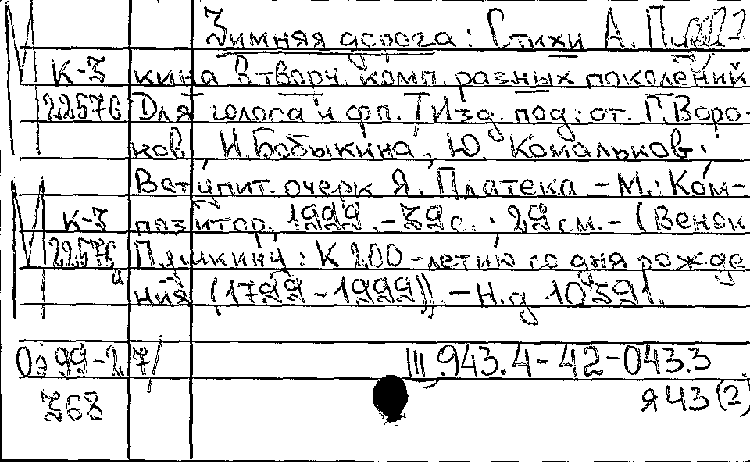 Зимняя дорога: Стихи А. Пуш
К-3 кина в творч. комп. разных поколений
22576 Для голоса и фп. / Изд. под: от. Г. Воро-
нов, И. Бобыкина, Ю. Комальков.
Вступит. очерк Я. Платека - М.: Ком-
К-3 позитор, 1999. - 39 с.; 29 см. - (Венок
22576 Пушкину: К 200-летию со дня рожде
ния (1799-1999)). - Н.д 10591.
Оэ 99-27/ III.943.4-42-043.3
368 я43(2)